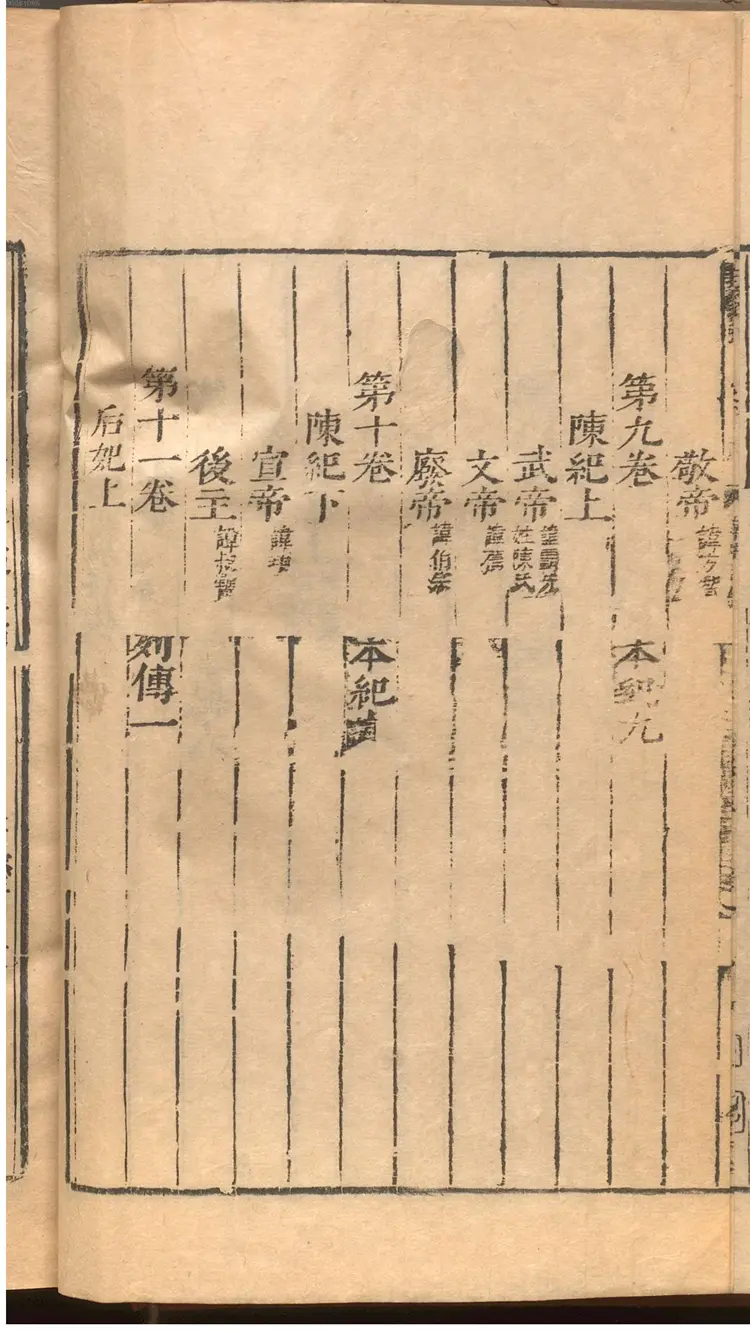 敬帝 諱方智
第九卷 本紀九
陳紀上
武帝 諱霸先 姓陳氏
文帝 諱蒨
廢帝 諱伯宗
第十卷 本紀
陳紀下
宣帝 諱頊
後主 諱叔寶
第十一卷 列傳一
后妃上